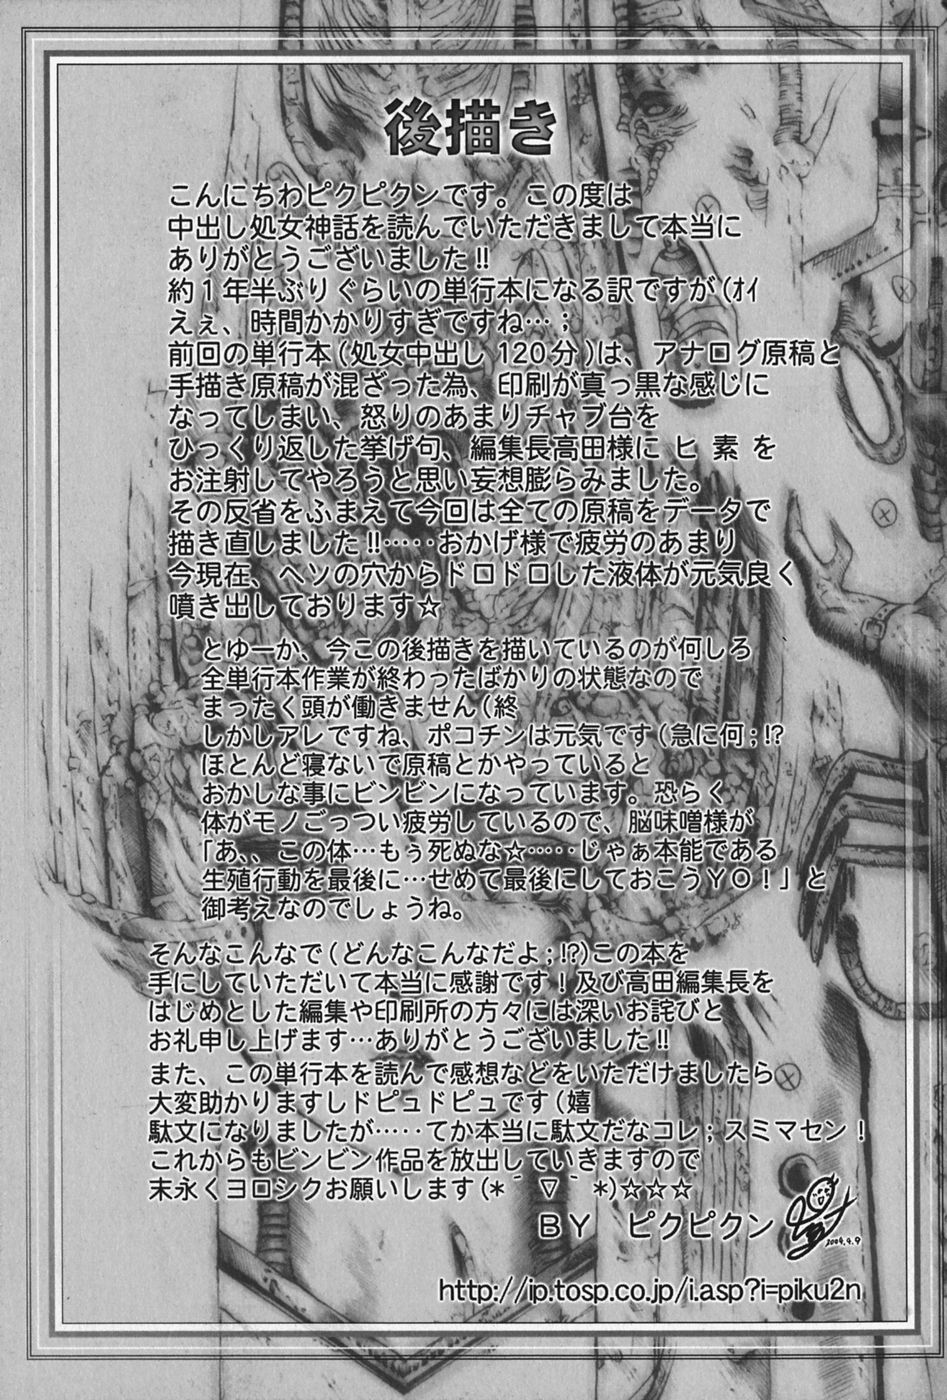 後描き
こんにちわピクピクンです。この度は
中出し処女神話を読んでいただきまして本当に
ありがとうございました!!
約1年半ぶりぐらいの単行本になる訳ですが(ｵｲ
えぇ、時間かかりすぎですね…；
前回の単行本(処女中出し120分)は、アナログ原稿と
手描き原稿が混ざった為、印刷が真っ黒な感じに
なってしまい、怒りのあまりチャブ台を
ひっくり返した挙げ句、編集長高田様に ヒ 素 を
お注射してやろうと思い妄想膨らみました。
その反省をふまえて今回は全ての原稿をデータで
描き直しました!!‥‥‥おかげ様で疲労のあまり
今現在、ヘソの穴からドロドロした液体が元気良く
噴き出しております☆
とゆーか、今この後描きを描いているのが何しろ
全単行本作業が終わったばかりの状態なので
まったく頭が働きません(終
しかしアレですね、ポコチンは元気です(急に何；!?
ほとんど寝ないで原稿とかやっていると
おかしな事にビンビンになっています。恐らく
体がモノごっつい疲労しているので、脳味噌様が
「あ、、この体…もぅ死ぬな☆‥‥‥じゃぁ本能である
生殖行動を最後に…せめて最後にしておこうＹＯ！」と
御考えなのでしょうね。
そんなこんなで(どんなこんなだよ；!?)この本を
手にしていただいて本当に感謝です！及び高田編集長を
はじめとした編集や印刷所の方々には深いお詫びと
お礼申し上げます…ありがとうございました!!
また、この単行本を読んで感想などをいただけましたら
大変助かりますしドピュドピュです(嬉
駄文になりましたが‥‥‥てか本当に駄文だなコレ；スミマセン！
これからもビンビン作品を放出していきますので
末永くヨロシクお願いします(*´∇｀*)☆☆☆
ＢＹ　ピクピクン
2004.4.9
http://ip.tosp.co.jp/i.asp?i=piku2n